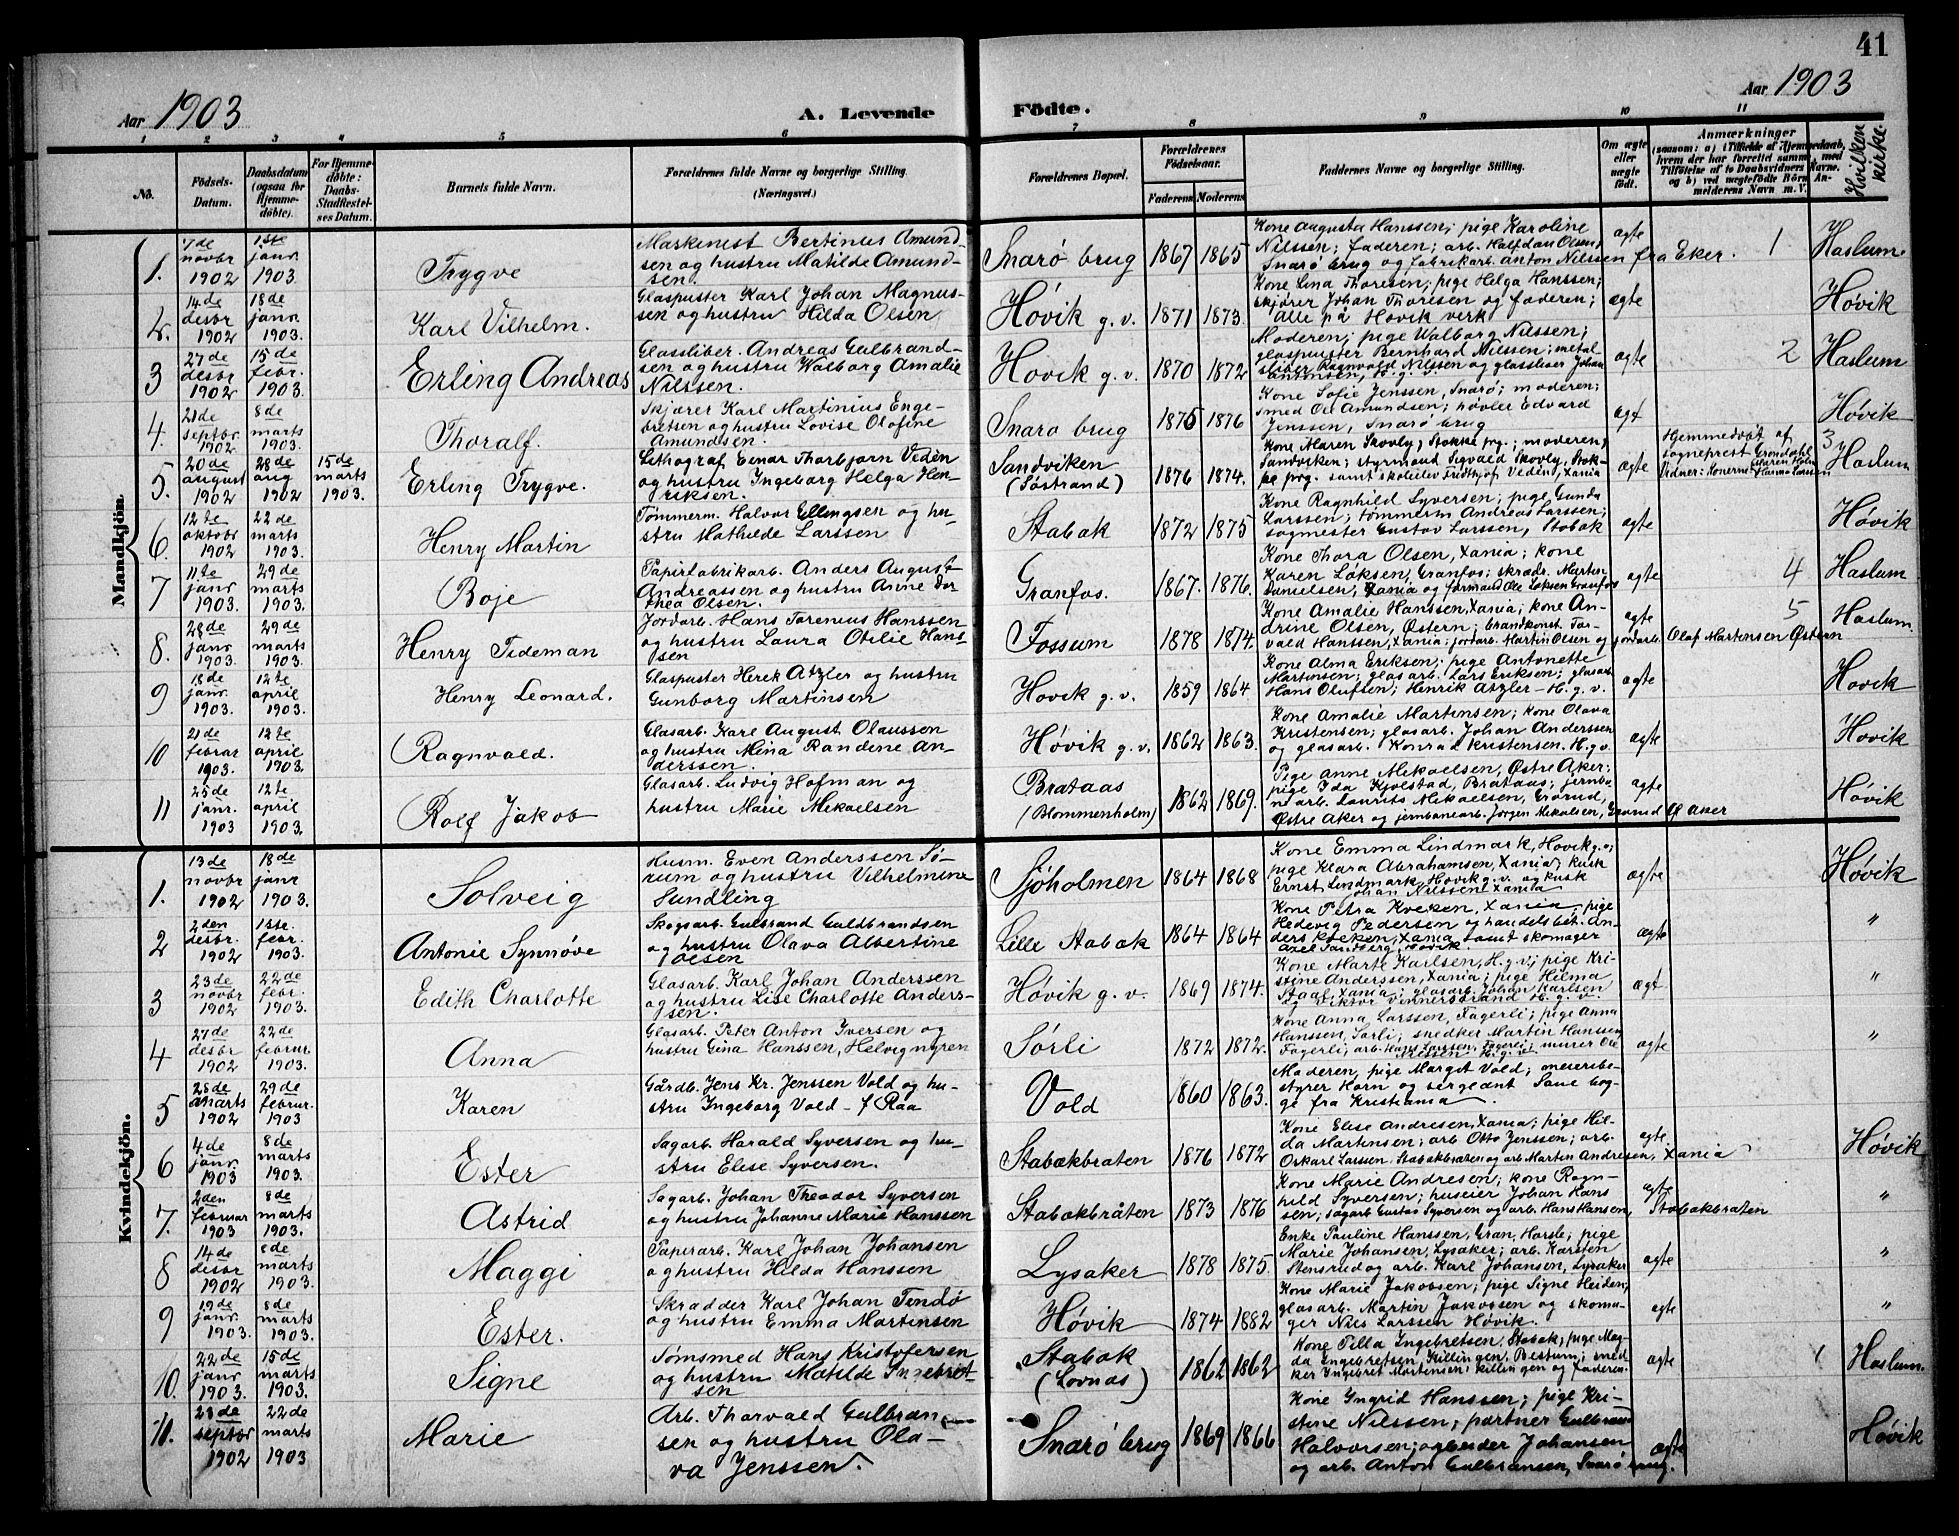 41
Aar 1903
A. Levende
Födte.
Aar 1903
1 2 3 4 5 6 7 8 9 10 11
No.
Födsels-Datum.
Daabsdatum (ogsaa for Hjemmedøbte).
For Hjemmedøbte: Daabs-Stadfæstelses Datum.
Barnets fulde Navn.
Forældrenes fulde Navne og borgerlige Stilling. (Næringsvei.)
Forældrenes Bopæl.
Forældrenes Födselsaar.
Faderens Moderens
Faddernes Navne og borgerlige Stilling.
Om ægte eller uægte født.
Anmærkninger
Hvilken kirke.
Mandkjön.
1. 7de novbr 1902 1ste janr 1903. Trygve
Maskinist Bertinus Amund-
sen og hustru Matilde Amund-
sen.
Snarø brug 1867 1865
Kone Augusta Hanssen; pige Karoline
Nilssen; faderen; arb. Halfdan Olsen,
Snarø brug og fabrikarb. Anton Nilssen fra Eker.
ægte 1 Haslum
2. 14de desbr 1902 18de janr. 1903. Karl Vilhelm.
Glaspuster Karl Johan Magnus-
sen og hustru Hilda Olsen
Høvik g. v. 1871 1873.
Kone Lina Thoresen; pige Helga Hanssen;
skjærer Johan Thoresen og faderen;
alle på Høvik verk
ægte Høvik
3 27de desbr 1902 15de febr. 1903. Erling Andreas
Glassliber. Andreas Gulbrand-
sen og hustru Walborg Amalie
Nilssen.
Høvik g. v. 1870 1872
Moderen; pige Walborg Nilssen;
glaspuster Bernhard Nilssen; metal-
sliber Ragnvald Nilsen og glassliber Johan
Antonsen, H. g. v.
ægte 2 Haslum
4. 21de septbr. 1902 8de marts 1903. Thoralf.
Skjærer Karl Martinius Enge-
bretsen og hustru Lovise Olofine
Amundsen.
Snarø brug 1875 1876
Kone Sofie Jenssen, Snarø; moderen;
smed Ole Amundsen; høvler Edvard
Jenssen, Snarø brug
ægt Høvik
5. 20de august 1902 28de aug 1902 15de marts 1903. Erling Trygve.
Lithograf Einar Thorbjørn Vedén
og hustru Ingeborg Helga Hen-
riksen.
Sandviken (Søstrand) 1876 1874.
Kone Maren Skovly, Stokke prg.; moderen,
Sandviken; styrmand Sigvald Skovly, Stok-
ke prg. samt skoleelev Fridthjof Vedén, Xania
ægte
Hjemmedøbt af
sogneprest Grøndahl
Vidner: Konerne Maren Holm
Hanna Larssen
3 Haslum
6. 12te oktobr 1902 22de marts 1903. Henry Martin
Tømmerm. Halvor Ellingsen og hu-
stru Mathilde Larssen
Stabæk 1872 1875
Kone Ragnhild Syversen; pige Gunda
Larssen; tømmerm Andreas Larssen;
sagmester Gustav Larssen, Stabæk
ægte Høvik
7 11te janr 1903. 29de marts 1903. Boje
Papirfabrikarb. Anders August
Andreassen og hustru Anne Dor
thea Olsen.
Granfos. 1867. 1876.
Kone Thora Olsen, Xania; kone
Karen Løksen, Granfos; skrædr. Morten
Danielsen, Xania og formand Ole Løksen Granfos
ægte 4 Haslum
8. 28de janr 1903. 29de marts 1903. Henry Tideman
Jordarb. Hans Torenius Hanssen
og hustru Laura Otilie Hans-
sen
Fossum 1878 1874.
Kone Amalie Hanssen, Xania; kone An-
drine Olsen, Østern; brandkonst. Tor-
vald Hanssen, Xania; jordarb. Martin Olsen og jordarb. Olaf Martinsen Østern
ægte 5 Haslum.
9 18de janr. 1903. 12te april 1903. Henry Leonard.
Glaspuster Herek Atzler og hustru
Gunborg Martinsen
Høvik g. v. 1859 1864
Kone Alma Eriksen; pige Antonette
Martinsen; glasarb. Lars Eriksen; glasarb
Hans Olufsen; Henrik Atzler - H. g. v.
ægte Høvik
10 21de februar 1903. 12te april 1903. Ragnvald.
Glasarb. Karl August Olaussen
og hustru Mina Randine An-
derssen.
Høvik g. v. 1862 1863.
Kone Amalie Martinsen; kone Olava
Kristensen; glasarb. Johan Anderssen
og glasarb. Konrad Kristensen. H. g. v.
ægte Høvik
11 25de janr. 1903 12te april 1903. Rolf Jakob
Glasarb. Ludvig Hofman og
hustru Marie Mikaelsen
Brataas (Blommenholm) 1862 1869.
Pige Anne Mikaelsen, Østre Aker;
pige Ida Kjølstad, Brataas; jernba
nearb. Laurits Mikaelsen, Grorud,
Østre Aker og jernbanearb. Jørgen Mikaelsen, Grorud Ø. Aker
ægte Høvik
Kvindekjön.
1. 13de novbr 1902 18de janr 1903. Solveig
Husm. Even Anderssen Sø-
rum og hustru Vilhelmine
Sundling
Sjøholmen 1864 1868
Kone Emma Lindmark, Høvik g. v;
pige Klara Abrahamsen, Xania; kusk
Ernst Lindmark, Høvik g. v. og kusk
Johan Nilssen, Xania
ægte Høvik
2 2den desbr. 1902 1ste. febr. 1903. Antonie Synnøve
Skogsarb. Gulbrand Guldbrandsen
og hustru Olava Albertine
Olsen
Lille Stabæk 1864 1864
Kone Petra Kveken, Xania; pige
Hedevig Pedersen og handelsbet. An-
ders Kveken, Xania samt skomager
Axel Sandberg, Høvik
ægte "
3 23de novbr 1902 22de febr. 1903. Edith Charlotte
Glasarb. Karl Johan Anderssen
og hustru Lise Charlotte Anders-
sen.
Høvik g. v. 1869 1874.
Kone Marte Karlsen, H. g. v; pige Kri-
stine Anderssen, Xania; pige Hilma
Staal, Xania; glasarb. Johan Karlsen
og Viktor Vinnerstrand H. g. v.
ægt "
4 27de desbr 1902 22de februar 1903. Anna
Glasarb. Peter Anton Iversen og
hustru Gina Hanssen, Helvignyren
Sørli 1872 1872.
Kone Anna Larssen, Fagerli; pige Anna
Hanssen, Sørli; snedker Martin Hanssen
Fagerli; arb. Hans Larssen, Fagerli; murer Ole
Nilssen H. g. v.
ægte "
5 28de marts 1902 29de februr. 1903 Karen
Gårdb. Jens Kr. Jenssen Vold og hu-
stru Ingeborg Vold - f Raa
Vold 1860 1863.
Moderen, pige Margit Vold; meieribe-
styrer Horn og sergeant Saue beg-
ge fra Kristiania
6 4de janr. 1903 8de marts 1903. Ester
Sagarb. Harald Syversen og hu-
stru Elise Syversen.
Stabækbråten 1876 1872
Kone Elise Andresen, Xania; pige Hil-
da Martinsen; arb Otto Jenssen; arb.
Oskarl Larssen. Stabækbråten og arb Martin Andresen, Xania
ægte. Høvik
7. 2den februar 1903 8de marts 1903. Astrid
Sagarb. Johan Theodor Syversen
og hustru Johanne Marie Hanssen
Stabækbråten 1873 1876
Kone Marie Andresen; kone Ragn-
hild Syversen; huseier Johan Hans
sen; sagarb Gustav Syversen og arb. Hans Hansen, Stabækbråten
ægte "
8 14de desbr 1902 8de marts 1903. Maggi
Papirarb. Karl Johan Johansen
og hustru Hilda Hanssen
Lysaker 1878 1875.
Enke Pauline Hanssen, Gran, Harsle; pige
Marie Johansen, Lysaker; arb. Karsten
Stensrud og arb. Karl Johansen, Lysaker
ægte "
9 19de janr. 1903. 8de marts 1903. Ester.
Skrædder Karl Johan Tendø
og hustru Emma Martinsen
Høvik 1874 1882
Kone Marie Jakobsen; pige Signe Heiden;
glasarb. Martin Jakobsen og skoma-
ger Nils Larssen Høvik.
ægte "
10. 22de janr 1903. 15de marts 1903. Signe
Tømsmed Hans Kristofersen
og hustru Matilde Ingebret-
sen
Stabæk (Løvnæs) 1862 1862
Kone Pilla Ingebretsen, Stabæk; pige Mag-
da Ingebretsen, Killingen, Bestum; sned-
ker Ingebret Martinsen, Killingen og faderen.
ægte 1 Haslum.
11. 28de septbr 1902 22de marts 1903 Marie
Arb. Thorvald Gulbran-
sen og hustru Ola-
va Jenssen.
Snarø brug 1869 1866
Kone Ingrid Hanssen; pige Kri-
stine Nilssen; partner Gulbran
Halvorsen; arbeider Johansen
og arb. Anton Gulbransen, Snarø brug.
ægte Høvik